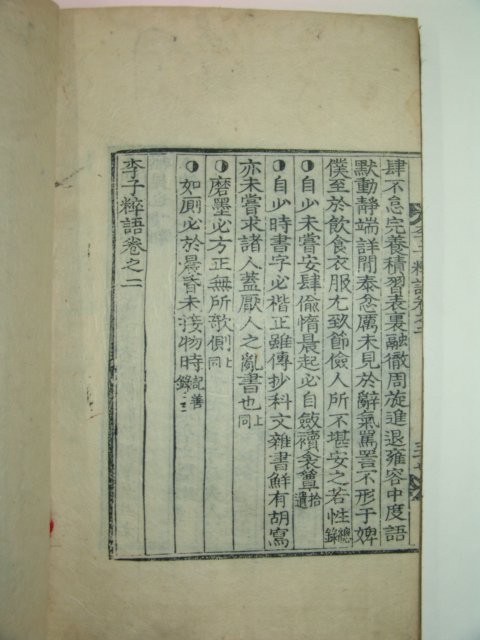 肆不怠完養積習表裏融徹周旋進退雍容中度語
默動靜端詳閒泰忿厲未見於辭氣罵詈不形于婢
僕至於飮食衣服尤致節儉人所不堪安之若性總錄
◑自少未嘗安肆偸惰晨起必自斂襆衾簟拾遺
◑自少時書字必楷正雖傳抄科文雜書鮮有胡寫
亦未嘗求諸人蓋厭人之亂書也上同
◑磨墨必方正無所欹側上同
◑如厠必於晨昏未接物時記善錄
李子粹語卷之二